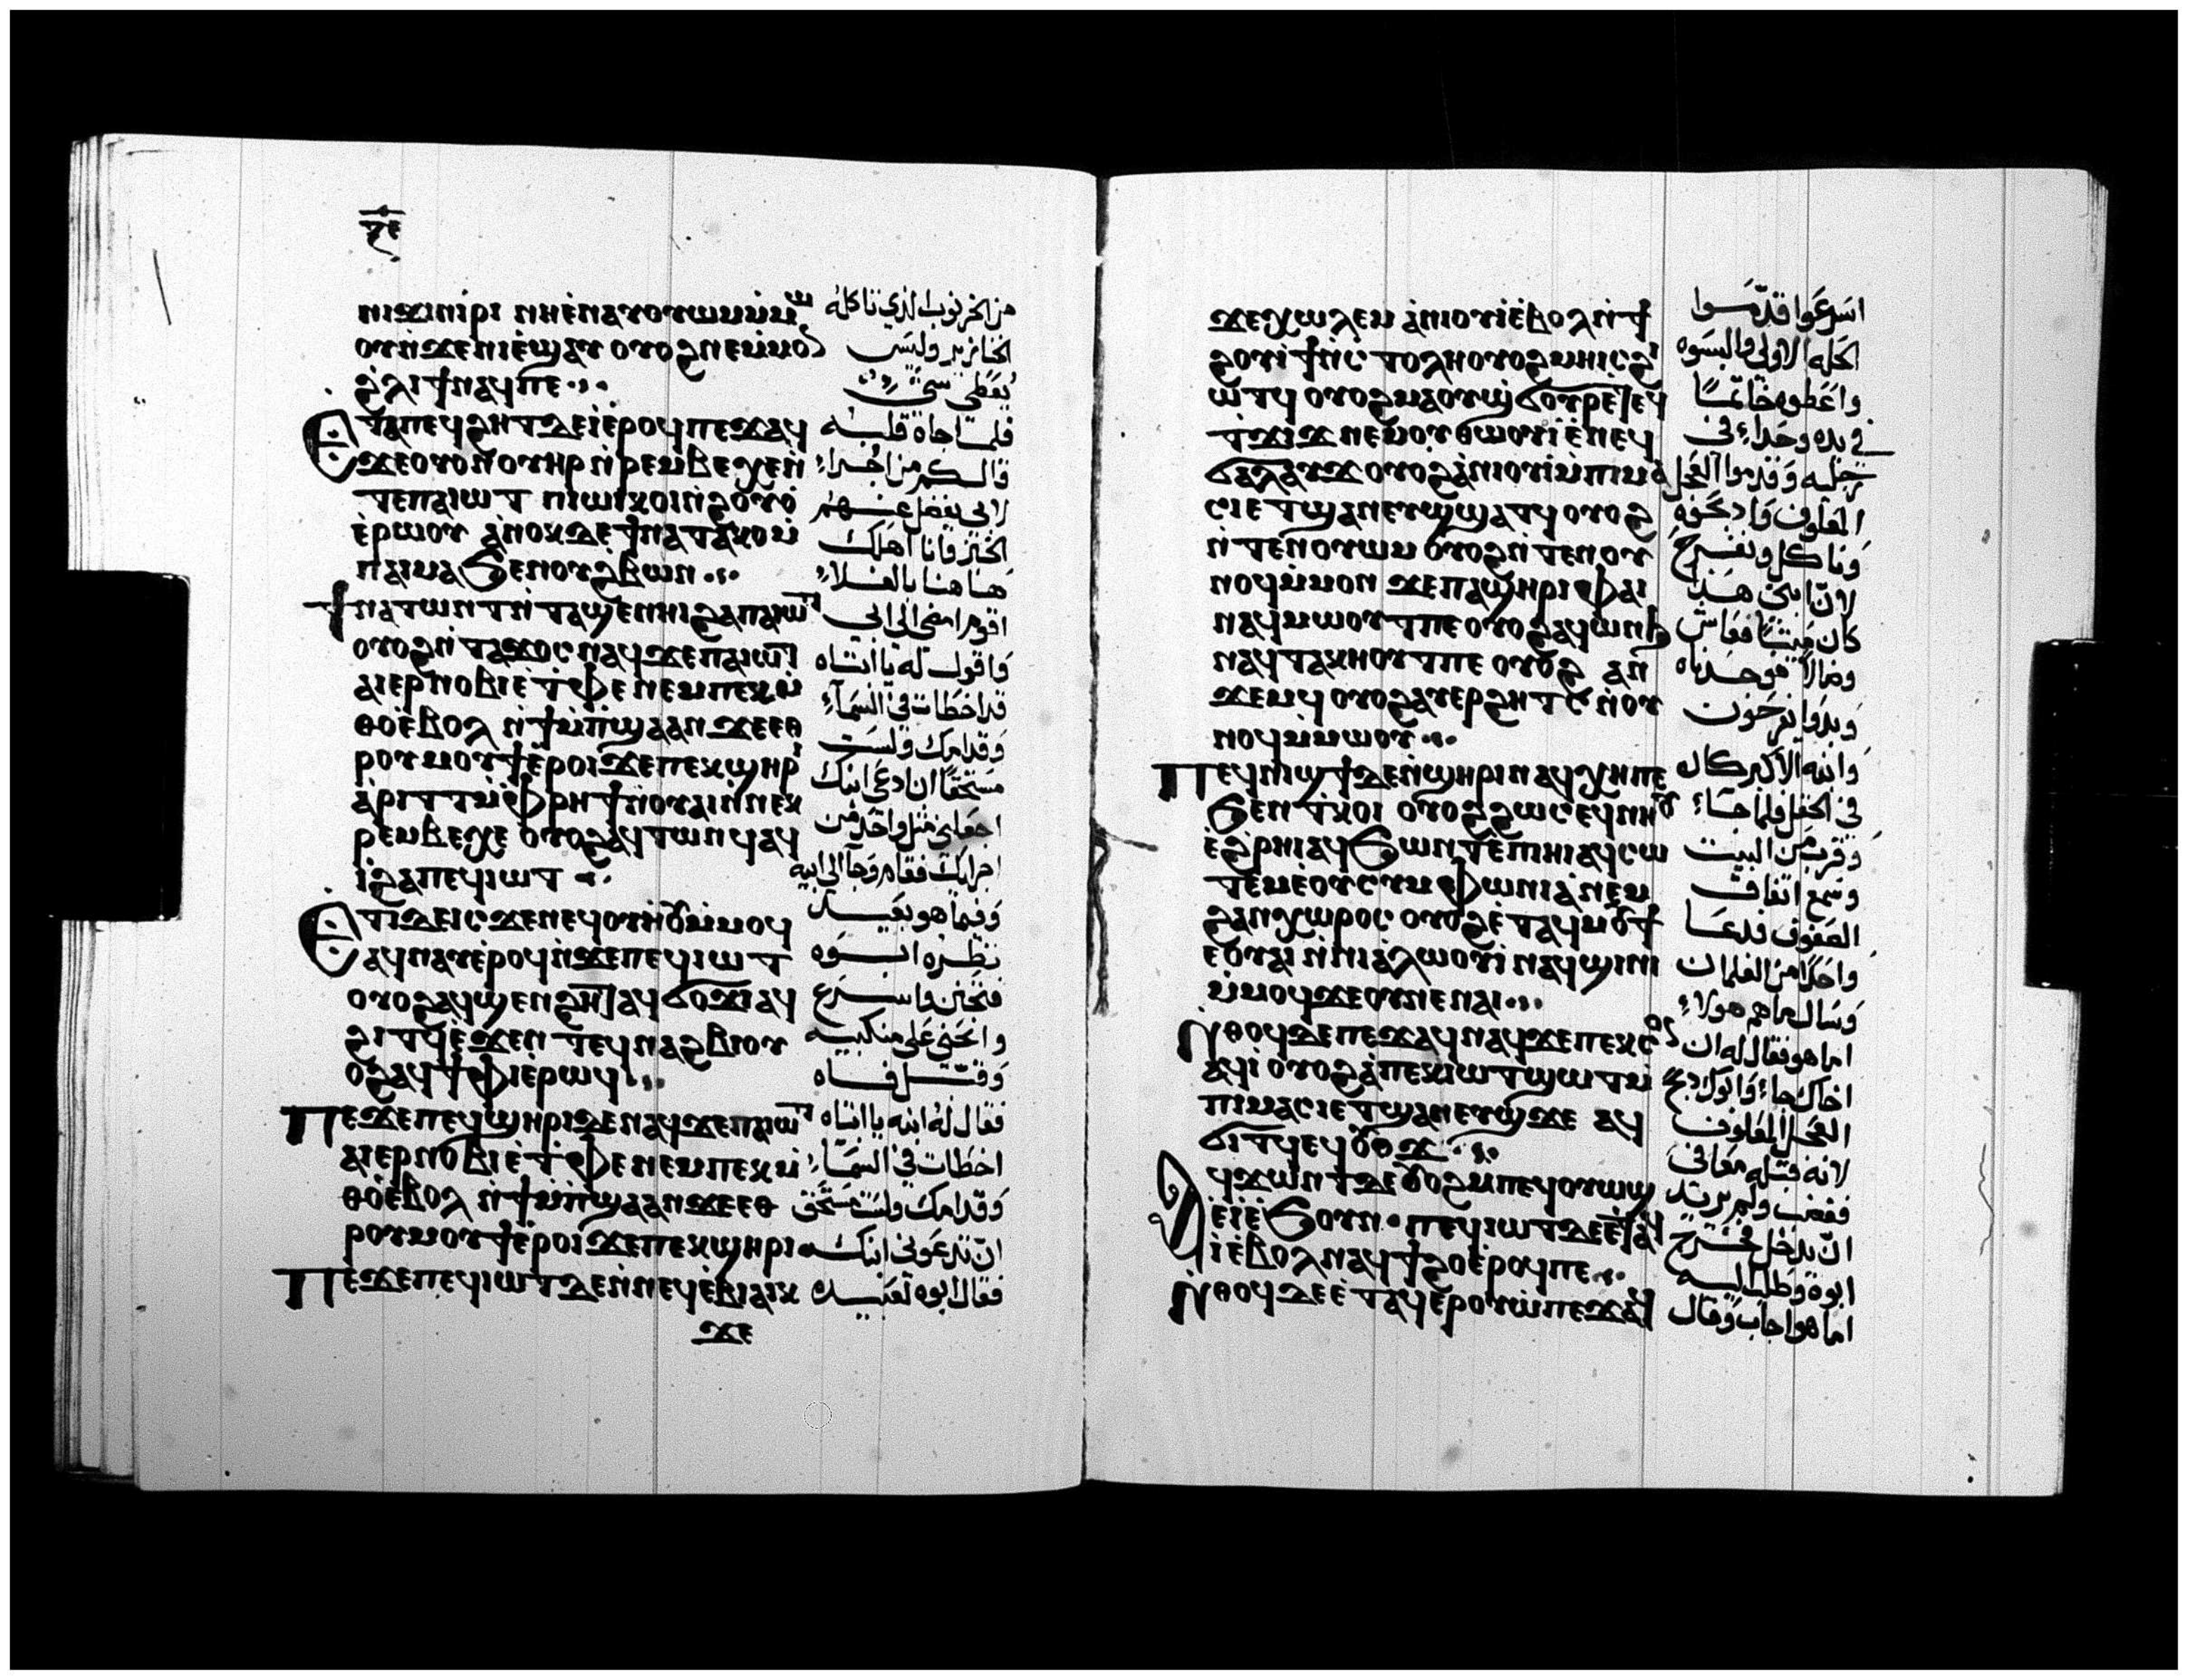 ⲛⲓϫⲓⲛⲓⲣⲓ ⲛⲏⲉⲛⲁⲩⲟⲩⲱⲙⲙⲙⲱ
ⲟⲩⲛϫⲉⲛⲓⲉϣⲁⲩ ⲟⲩⲟϩⲛⲉⲙⲙⲟⲛ
ϩⲗⲓϯⲛⲁϥⲡⲉ
Ⲉⲧⲁⲡⲉϥϩⲏⲧ ⲇⲉⲓⲉⲣⲟϥ ⲡⲉϫⲁϥ
ϫⲉⲟⲩⲟⲛⲟⲩⲏⲣ ⲛⲣⲉⲙⲃⲉⲭⲉⲛ
ⲧⲉⲡⲁⲓⲱⲧ ⲡⲓⲱⲓⲕ ⲟⲓⲛϩⲟⲩⲟ
ⲉⲣⲱⲟⲩ ⲁⲛⲟⲕⲇⲉ ϯⲛⲁⲧⲁⲕⲟⲙ
ⲡⲁⲓⲙⲁϧⲉⲛⲟⲩϩⲃⲱⲛ
ϯⲛⲁⲧⲱⲛⲧ ⲛⲧⲁϣⲉⲛⲏⲓ ϩⲁⲡⲁⲓⲱⲧ
ⲟⲩⲟϩⲛⲧⲁϫⲟⲥ ⲛⲁϥϫⲉⲡⲁⲓⲱⲧ
ⲁⲓⲉⲣⲛⲟⲃⲓ ⲉⲧⲫⲉ ⲛⲉⲙⲡⲉⲕⲙ
ⲑⲟⲉⲃⲟⲗ ⲛϯⲙⲡϣⲁⲁⲛϫⲉⲉⲑ
ⲣⲟⲩⲙⲟⲩϯⲉⲣⲟⲓϫⲉⲡⲉⲕϣⲏⲣⲓ
ⲁⲣⲓⲧⲧⲙⲫⲣⲏϯⲛⲟⲩⲁⲓⲛⲛⲉⲕ
ⲣⲉⲙⲃⲉⲭⲉ ⲟⲩⲟϩⲁϥⲧⲱⲛϥⲁϥ
ⲓϩⲁⲡⲉϥⲓⲱⲧ
Ⲉⲧⲓⲇⲉⲓⲥϫⲉⲛⲉϥⲟⲩⲏⲟⲩⲙⲙⲟϥ
ⲁϥⲛⲁⲩⲉⲣⲟϥⲛϫⲉⲡⲉϥⲓⲱⲧ
ⲟⲩⲟϩⲁϥϣⲉⲛϩⲏⲧ ⲁϥϭⲟϫⲓ ⲁϥ
ϩⲓⲧϥⲉϫⲉⲛ ⲧⲉϥⲛⲁϩⲃⲓⲟⲩ
ⲟϩⲁϥϯⲫⲓⲉⲣⲱϥ
Ⲡⲉϫⲉⲡⲉϥϣⲏⲣⲓⲇⲉⲛⲁϥϫⲉⲡⲁⲓⲱⲧ
ⲁⲓⲉⲣⲛⲟⲃⲓ ⲉⲧⲫⲉ ⲛⲉⲙⲡⲉⲕⲙ
ⲑⲟⲉⲃⲟⲗ ⲛϯⲙⲡϣⲁⲁⲛϫⲉⲉⲑ
ⲣⲟⲩⲙⲟⲩϯⲉⲣⲟⲓϫⲉⲡⲉⲕϣⲏⲣⲓ
Ⲡⲉϫⲉⲡⲉϥⲓⲱⲧⲇⲉⲛⲛⲉϥⲉⲃⲓⲁⲓⲕ
ϫⲉ
من الخرنوب الذي تاكله
الخنازير وليس
يعطى شي
فلما جاه قلبه
قال كم من اجراء
لابي يفضل عنهم
الخبز وانا اهلك
هاهنا بالغلاء
اقوم امضي الى ابي
واقول له يا ابتاه
قد اخطات في السماء
وقدامك ولست
مستحقا ان ادعى ابنك
اجعلني مثل واحد من
اجرايك فقام وجا الى ابيه
وفيما هو بعيد
نظره ابوه
فتحنن واسرع
وانحنى على منكبيه
وقبل فاه
فقال له ابنه يا ابتاه
اخطات في السماء
وقدامك ولست مستحق
ان تدعوني ابنك
فقال ابوه لعبيده
ϫⲉⲭⲱⲗⲉⲙ ⲁⲛⲓⲟⲩⲓⲉⲃⲟⲗⲛϯ
ϩⲟⲩⲓϯⲛⲥⲧⲟⲗⲏ ⲟⲩⲟϩⲙⲏⲓⲥϩⲓ
ⲱⲧϥ ⲟⲩⲟϩⲙⲁⲟⲩϣϭⲟⲩⲣⲉⲧⲉϥ
ϫⲓϫ ⲛⲉⲙⲟⲩⲑⲱⲟⲩⲓ ⲉⲛⲉϥ
ϭⲁⲗⲁⲩϫ ⲟⲩⲟϩⲁⲛⲓⲟⲩⲓⲙⲡⲓⲙⲁ
ⲥⲓⲉⲧϣⲁⲛⲉⲩϣϣⲁⲧϥ ⲟⲩⲟϩ
ⲛⲧⲉⲛⲟⲩⲱⲙ ⲟⲩⲟϩⲛⲧⲉⲛⲟⲩ
ⲛⲟϥⲙⲙⲟⲛ ϫⲉⲡⲁϣⲏⲣⲓ ⲫⲁⲓ
ⲛⲁϥⲙⲱⲟⲩⲧⲡⲉ ⲟⲩⲟϩⲁϥⲱⲛϧ
ⲛⲁϥⲧⲁⲕⲏⲟⲩⲧⲡⲉ ⲟⲩⲟϩ ⲁⲛ
ϫⲉⲙϥ ⲟⲩⲟϩⲁⲩⲉⲣϩⲏⲧⲥ ⲛⲟⲩ
ⲛⲟϥⲙⲙⲱⲟⲩ
Ⲡⲉϥⲛⲓϣϯⲇⲉⲛϣⲏⲣⲓ ⲛⲁϥⲭⲏⲡⲉ
ϧⲉⲛⲧⲕⲟⲓ ⲟⲩⲟϩϩⲱⲥⲉϥⲛⲏⲟⲩ
ⲉϩⲣⲏⲓⲁϥϧⲱⲛⲧⲉⲡⲓⲏⲓ ⲁϥⲥⲱ
ⲧⲉⲙⲉⲟⲩⲥⲩⲙⲫⲱⲛⲓⲁ ⲛⲉⲙ
ϩⲁⲛⲭⲱⲣⲟⲥ ⲟⲩⲟϩⲉⲧⲁϥⲙⲟⲩϯ
ⲉⲟⲩⲁⲓ ⲛⲛⲓⲁⲗⲱⲟⲩⲓ ⲛⲁϥϣⲓⲛⲓ
ⲙⲙⲟϥϫⲉⲟⲩⲛⲉⲛⲁⲓ
Ⲛⲑⲟϥⲇⲉⲡⲉϫⲁϥⲛⲁϥϫⲉⲡⲉⲕⲥⲟⲛ
ⲁϥⲓ ⲟⲩⲟϩⲁⲡⲉⲕⲓⲱⲧϣⲱⲧⲙ
ⲡⲓⲙⲁⲥⲓⲉⲧϣⲁⲛⲉⲩϣϫⲉ ⲁϥ
ϭⲓⲧϥⲉϥⲟⲩⲟϫ
Ⲁϥϫⲱⲛⲧⲇⲉ ⲟⲩⲟϩⲙⲡⲉϥⲟⲩⲱϣ
ⲉⲓⲉϧⲟⲩⲛ ⲡⲉϥⲓⲱⲧⲇⲉⲉⲧⲁϥ
ⲓⲉⲃⲟⲗⲛⲁϥϯϩⲟⲉⲣⲟϥⲡⲉ
Ⲛⲑⲟϥⲇⲉⲉⲧⲁϥⲉⲣⲟⲩⲱⲡⲉϫⲁϥ
اسرعوا قدموا
الحله الاولى والبسوه
واعطوه خاتما
في يده وحذاء في
رجليه وقدموا العجل
المعلوف واذبحوه
وناكل ونفرح
لان ابني هذا
كان ميتا فعاش
وضالا فوجدناه
وبدوا يفرحون
وابنه الاكبر كان
في الحقل فلما جاء
وقرب من البيت
وسمع اتفاق
الصفوف فدعا
واحدا من الغلمان
وسال ما هم هولاء
اما هو فقال له ان
اخاك جاء وابوك ذبح
العجل المعلوف
لانه قبله معافى
فغضب ولم يريد
ان يدخل فخرج
ابوه وطلب اليه
اما هو اجاب وقال